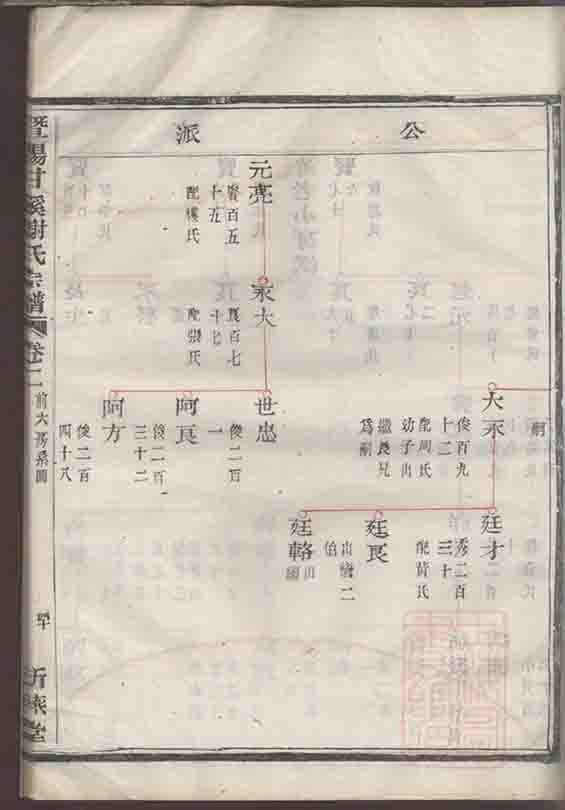 公
派
大禾
俊百九
十二
配周氏
幼子出
繼長兄
爲嗣
廷才
秀二百
三十
配黄氏
廷良
出嗣二
伯
廷輅
出
嗣
元亮
賢百五
十五
配樓氏
永大
良百七
十七
配張氏
世忠
俊二百
一
阿良
俊二百
三十二
阿方
俊二百
四十八
暨陽甘溪謝氏宗譜 卷二 前六房系圖
嗣